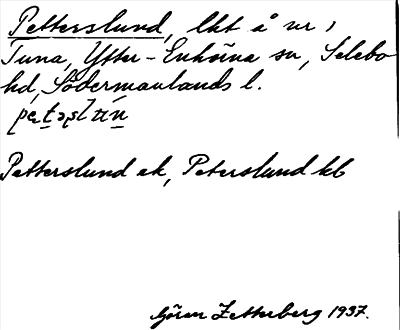 Petterslund, lht å nr 1
Tuna, Ytter-Enhörna sn, Selebo
hd, Södermanlands l.
Petterslund ek, Peterslund kb
Gören Zetterberg 1937.